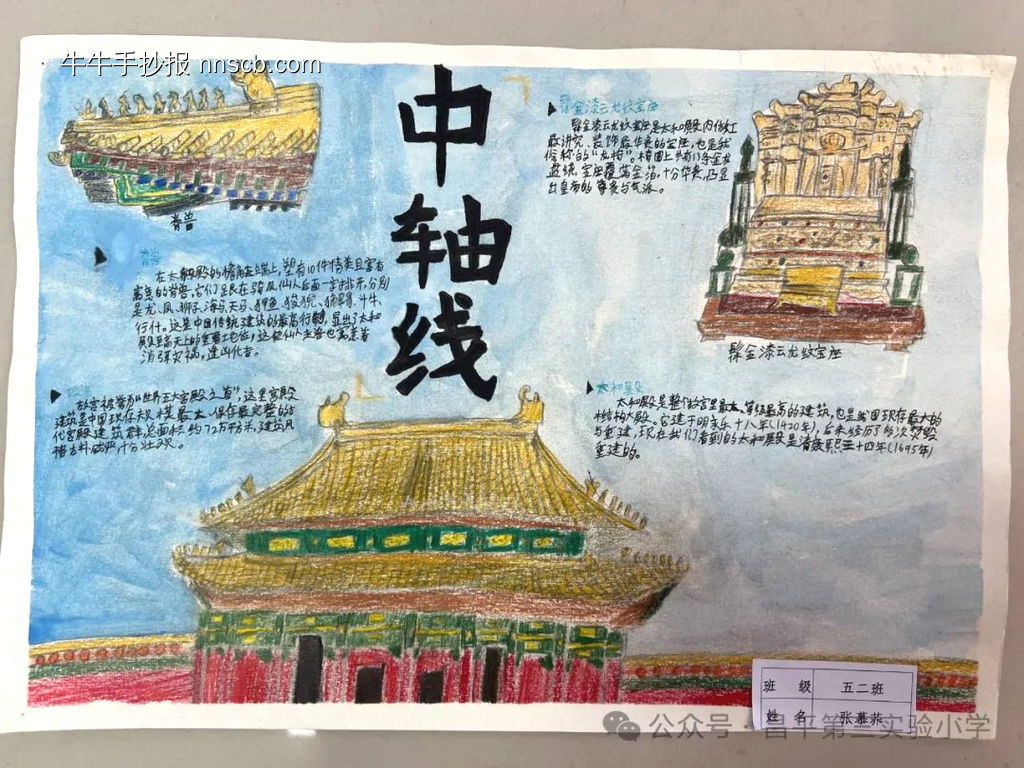 牛牛手抄报 nnscb.com
中
轴
线
脊兽
脊兽
在太和殿的檐角垂端上,塑有10件精美且富有
寓意的脊兽,它们
是龙、凤、狮子、海马、天马、狎鱼、狻猊、獬豸、斗牛、
行什。这是中国传统建筑的最高
消弭灾祸,逢凶化吉。
故宫被誉为“世界五大宫殿之首”,这里宫殿
建筑是中国现存规模最大、保存最完整的古
代宫殿建筑群,总面积约72万平米,建筑风
格古朴威严,十分壮观。
髹金漆云龙纹宝座
髹金漆云龙纹宝座是太和殿内做工
最讲究、装饰最华贵的宝座,也是我
们俗称的“龙椅”。椅圈上共有13条金龙
盘绕,宝座覆满金箔,十分华贵,凸显
出皇帝的尊贵与气派。
髹金漆云龙纹宝座
太和殿
太和殿是整个故宫里最大、等级最高的建筑,也是我国现存最大的
木结构大殿。它建于明永乐十八年(1420年),后来经历了多次焚毁
与重建,现在我们看到的太和殿是清康熙三十四年(1695年)
重建的。
班 级 五二班
姓 名 张慕
公众号·昌平第二实验小学